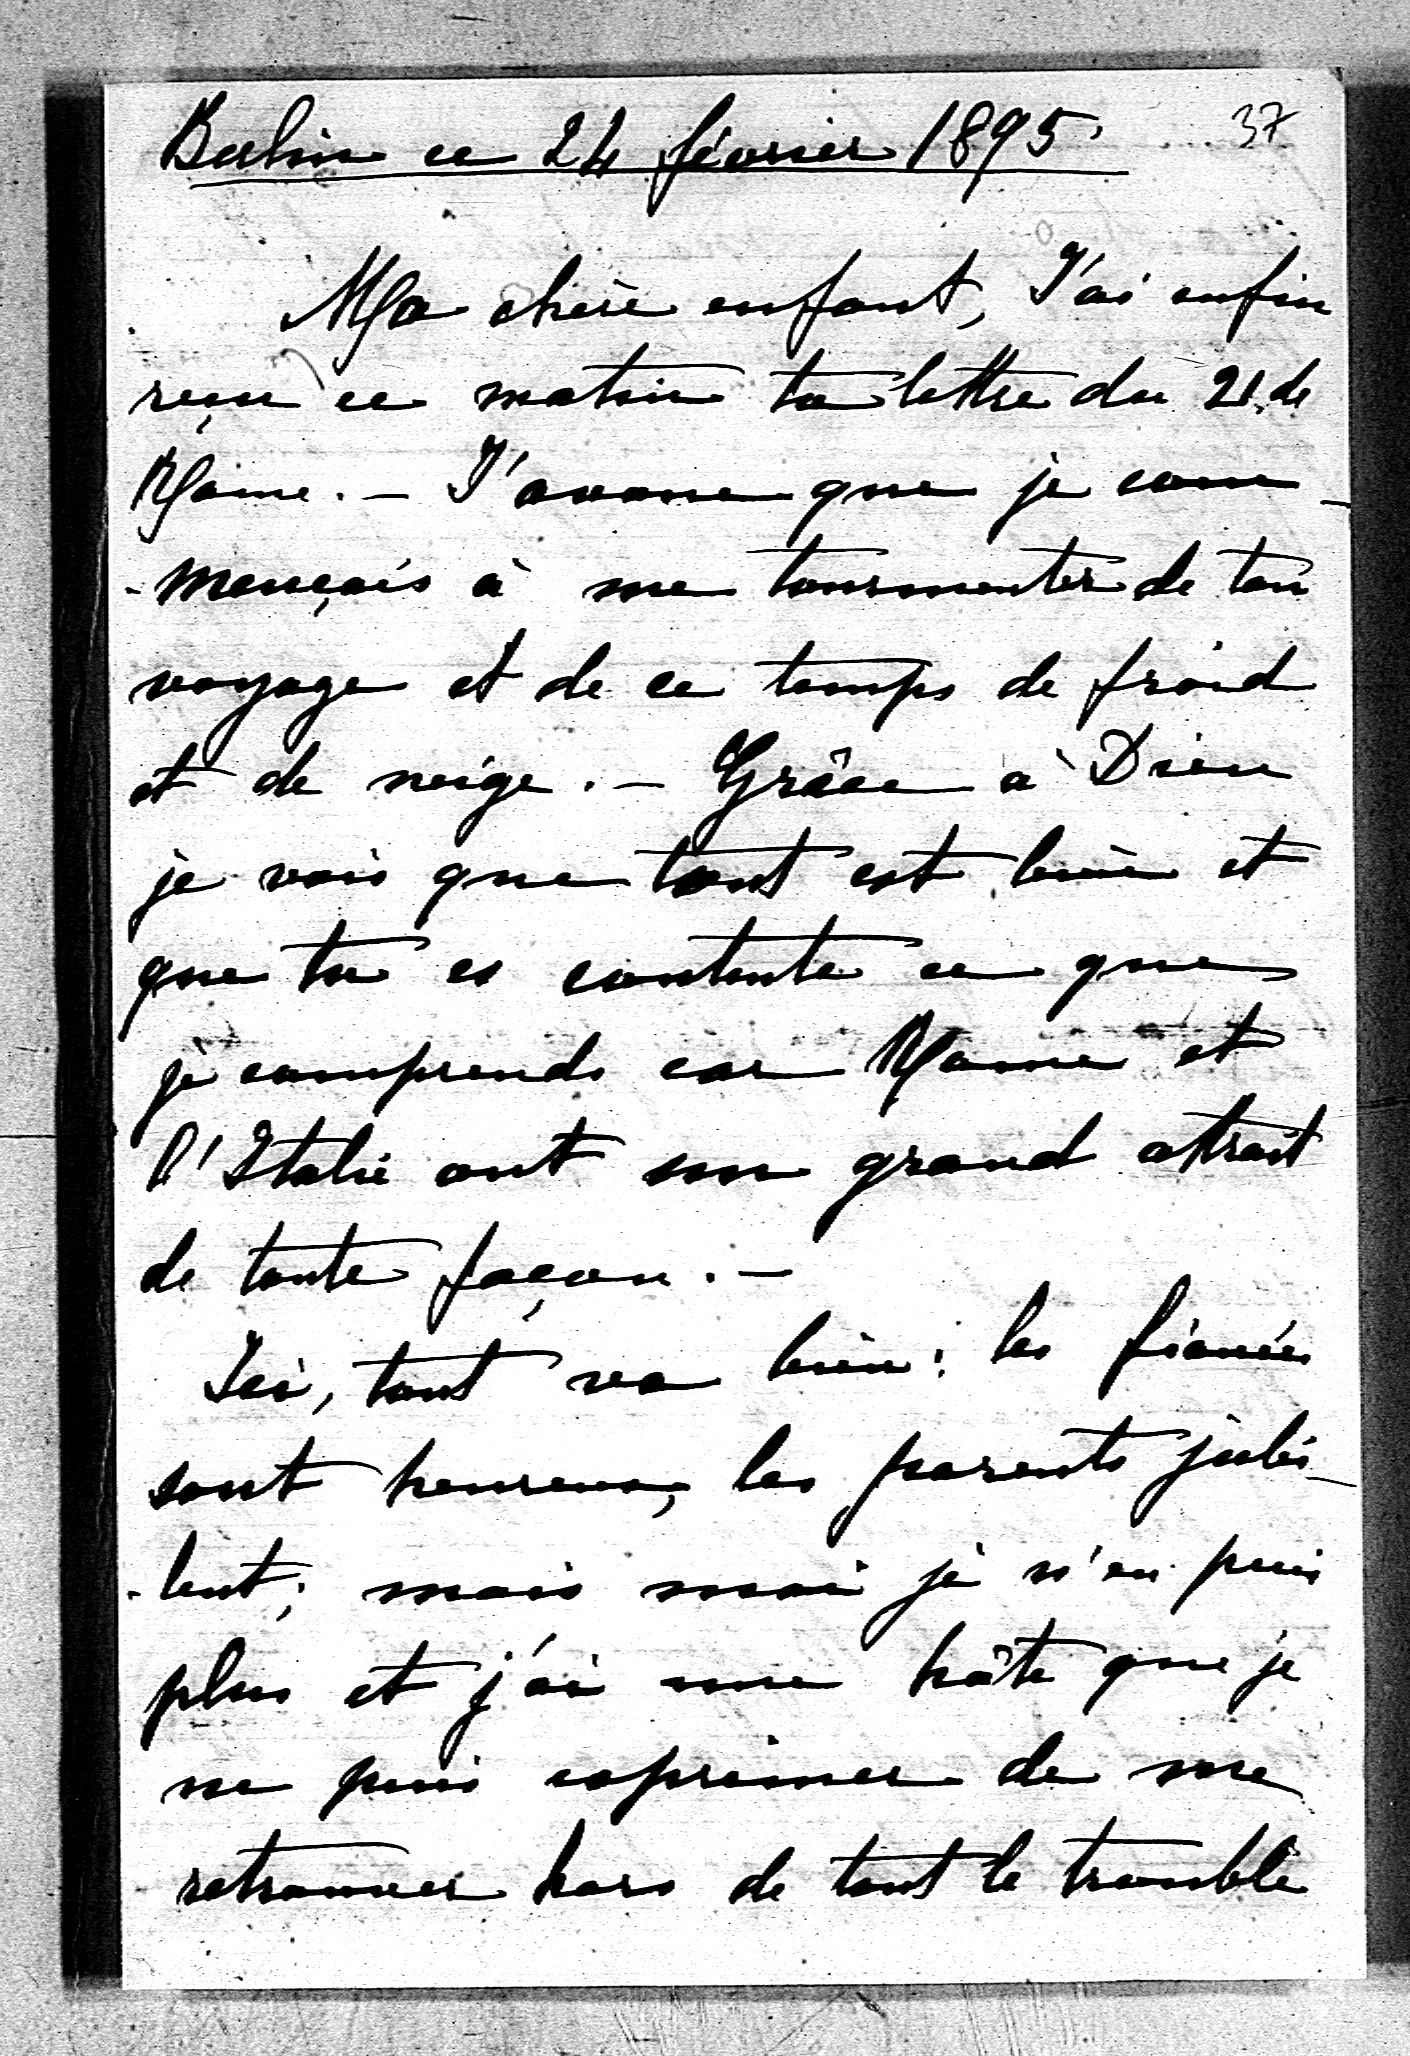 Berlin ce 24 février 1895.
37
Ma chère enfant, J'ai enfin
reçu ce matin ta lettre du 21 de
Rome. – J'avoue que je com-
-mençais à me tourmenter de ton
voyage et de ce temps de froid
et de neige. – Grâce à Dieu
je vois que tout est bien et
que tu es contente ce que
je comprends car Rome et
l'Italie ont un grand attrait
de toute façon. –
Ici, tout va bien: les fiancés
sont heureux, les parents jubi-
-lent; mais moi je n'en puis
plus et j'ai une hâte que je
ne puis exprimer de me
retrouver hors de tout le trouble